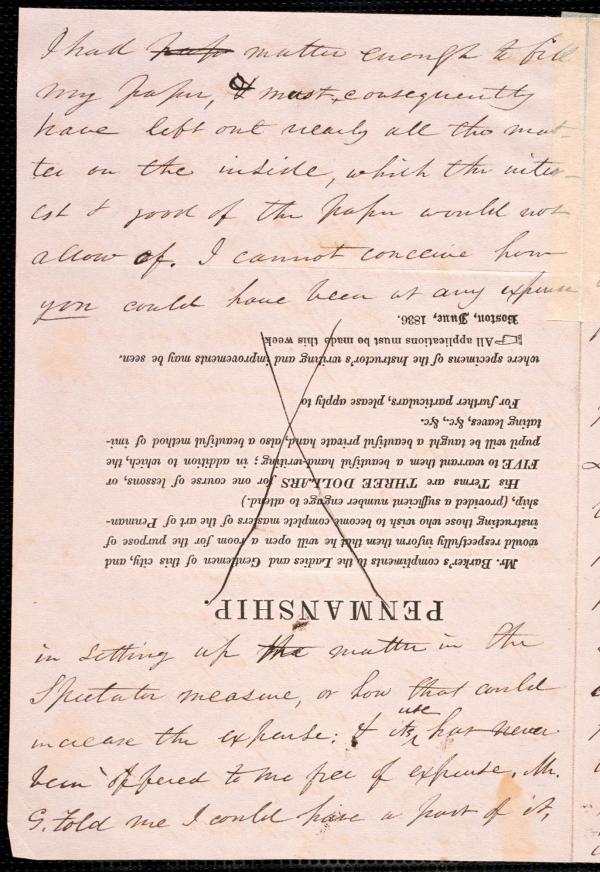 I had pap matter enough to fill
my paper, & must, consequently
have left out nearly all the mat-
ter on the inside, which the inter-
est & good of the paper would not
allow of. I cannot conceive how
you could have been at any expense
PENMANSHIP.
Mr. Barker's compliments to the Ladies and Gentlemen of this city, and
would respectfully inform them that he will open a room for the purpose of
instructing those who wish to become complete masters of the art of Penman-
ship, (provided a sufficient number engage to attend.)
His Terms are THREE DOLLARS for one course of lessons, or
FIVE to warrant them a beautiful hand-writing; in addition to which, the
pupil will be taught a beautiful private hand, also a beautiful method of imi-
tating leaves, &c., &c.
For further particulars, please apply to
where specimens of the Instructor's writing and improvements may be seen.
☞All applications must be made this week
Boston, June, 1836.
in setting up the matter in the
Spectator measure, or how that could
increase the expense: & its use has never
been offered to me free of expense. Mr.
G. told me I could have a part of it,